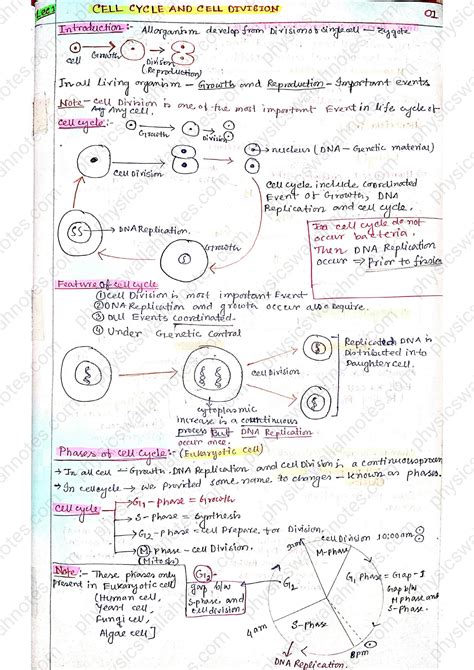 Lec-1 CELL CYCLE AND CELL DIVISION 01
Introduction:- All organism develop from Division of Single cell - Zygote
cell
Growth
Division
(Reproduction)
In all living organism - Growth and Reproduction - Important events
Note - Cell Division is one of the most important Event in life cycle of
Any cell.
Cell cycle :-
Growth
Division
nucleus (DNA - Genetic material)
Cell Division
Cell cycle include Coordinated
Event of Growth, DNA
Replication and cell cycle.
DNA Replication.
Growth
In cell cycle do not
occur bacteria.
Then DNA Replication
occur ⇒ Prior to fission
Feature of cell cycle
① Cell Division is most important Event
② DNA Replication and growth occur also Require.
③ All Events coordinated.
④ Under Genetic Control
Cell Division
Replicated DNA is
Distributed in to
Daughter cell.
cytoplasmic
increase is a continuous
process But DNA Replication
occur once.
Phases of cell cycle :- (Eukaryotic cell)
→ In all cell - Growth, DNA Replication and cell Division is a continuous process
→ In cell cycle → we provided some name to changes - known as phases.
Cell cycle → G1 - Phase = Growth
→ S - Phase = Synthesis
→ G2 - Phase = cell Prepare for Division.
→ M - Phase - Cell Division.
(Mitosis)
Note :- These phases only
present in Eukaryotic cell
(Human cell,
Yeast cell,
Fungi cell,
Algae cell]
(G2)-
gap b/w
S-phase and
cell division
Cell Division 10:00am
M-Phase
G1 Phase = Gap-I
Gap b/w
M phase and
S-Phase.
G2
S-Phase
4am
8pm
DNA Replication.